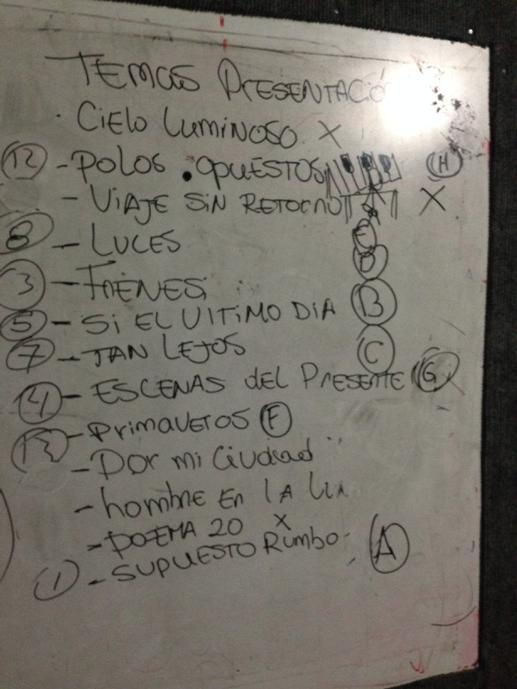 TEMAS PRESENTACIÓ
· CIELO LUMINOSO X
12 - POLOS OPUESTOS H
- VIAJE SIN RETORNO X
8 - LUCES E
3 - FRENESI D
5 - SI EL ULTIMO DIA B
7 - TAN LEJOS C
14 - ESCENAS del PRESENTE G
- PRIMAVEROS F
- POR mi Ciudad "
- hombre EN LA
- POEMA 20 X
1 - SUPUESTO Rumbo A